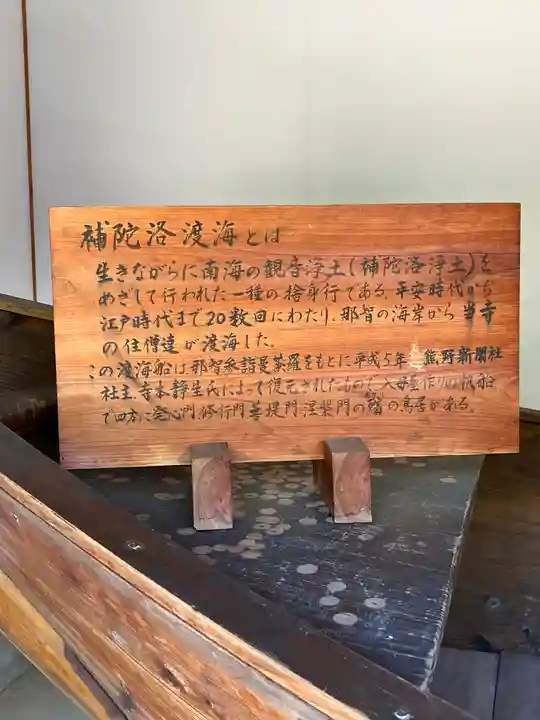 補陀洛渡海とは
生きながらに南海の観音浄土(補陀洛浄土)を
めざして行われた一種の捨身行である。平安時代から
江戸時代まで20数回にわたり、那智の海岸から当寺
の住僧達が渡海した。
この渡海船は那智参詣曼荼羅をもとに平成5年 熊野新聞社
社主、寺本静生氏によって復元されたもので、入母屋作りの帆船
で四方に発心門、修行門、菩提門、涅槃門の の鳥居がある。